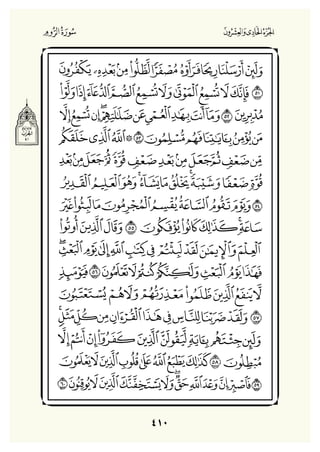 الجُزْءُ الحَادِي وَالعِشْرُونَ
سُورَةُ الرُّومِ
وَلَئِنْ أَرْسَلْنَا رِيحًا فَرَأَوْهُ مُصْفَرًّا لَّظَلُّوا۟ مِنۢ بَعْدِهِۦ يَكْفُرُونَ
٥١ فَإِنَّكَ لَا تُسْمِعُ ٱلْمَوْتَىٰ وَلَا تُسْمِعُ ٱلصُّمَّ ٱلدُّعَآءَ إِذَا وَلَّوْا۟
مُدْبِرِينَ ٥٢ وَمَآ أَنتَ بِهَٰدِ ٱلْعُمْىِ عَن ضَلَٰلَتِهِمْ ۖ إِن تُسْمِعُ إِلَّا
مَن يُؤْمِنُ بِـَٔايَٰتِنَا فَهُم مُّسْلِمُونَ ٥٣ ۞ ٱللَّهُ ٱلَّذِى خَلَقَكُم
مِّن ضَعْفٍ ثُمَّ جَعَلَ مِنۢ بَعْدِ ضَعْفٍ قُوَّةً ثُمَّ جَعَلَ مِنۢ بَعْدِ
قُوَّةٍ ضَعْفًا وَشَيْبَةً ۚ يَخْلُقُ مَا يَشَآءُ ۖ وَهُوَ ٱلْعَلِيمُ ٱلْقَدِيرُ
٥٤ وَيَوْمَ تَقُومُ ٱلسَّاعَةُ يُقْسِمُ ٱلْمُجْرِمُونَ مَا لَبِثُوا۟ غَيْرَ
سَاعَةٍ ۚ كَذَٰلِكَ كَانُوا۟ يُؤْفَكُونَ ٥٥ وَقَالَ ٱلَّذِينَ أُوتُوا۟
ٱلْعِلْمَ وَٱلْإِيمَٰنَ لَقَدْ لَبِثْتُمْ فِى كِتَٰبِ ٱللَّهِ إِلَىٰ يَوْمِ ٱلْبَعْثِ ۖ
فَهَٰذَا يَوْمُ ٱلْبَعْثِ وَلَٰكِنَّكُمْ كُنتُمْ لَا تَعْلَمُونَ ٥٦ فَيَوْمَئِذٍ
لَّا يَنفَعُ ٱلَّذِينَ ظَلَمُوا۟ مَعْذِرَتُهُمْ وَلَا هُمْ يُسْتَعْتَبُونَ
٥٧ وَلَقَدْ ضَرَبْنَا لِلنَّاسِ فِى هَٰذَا ٱلْقُرْءَانِ مِن كُلِّ مَثَلٍ ۚ
وَلَئِن جِئْتَهُم بِـَٔايَةٍ لَّيَقُولَنَّ ٱلَّذِينَ كَفَرُوٓا۟ إِنْ أَنتُمْ إِلَّا
مُبْطِلُونَ ٥٨ كَذَٰلِكَ يَطْبَعُ ٱللَّهُ عَلَىٰ قُلُوبِ ٱلَّذِينَ لَا يَعْلَمُونَ
٥٩ فَٱصْبِرْ إِنَّ وَعْدَ ٱللَّهِ حَقٌّ ۖ وَلَا يَسْتَخِفَّنَّكَ ٱلَّذِينَ لَا يُوقِنُونَ ٦٠
٤١٠